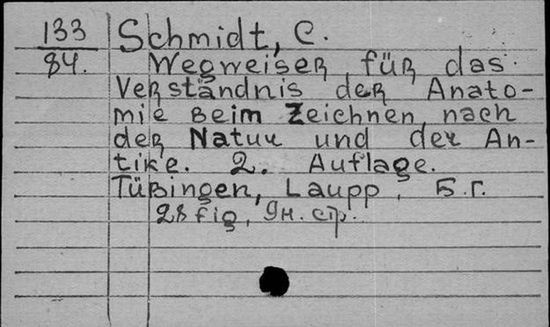 133
84.
Schmidt, C.
Wegweiser für das
Verständnis der Anato-
mie beim Zeichnen nach
der Natur und der An-
tike. 2. Auflage.
Tübingen, Laupp, Б.Г.
28 fig, 9н. стр.